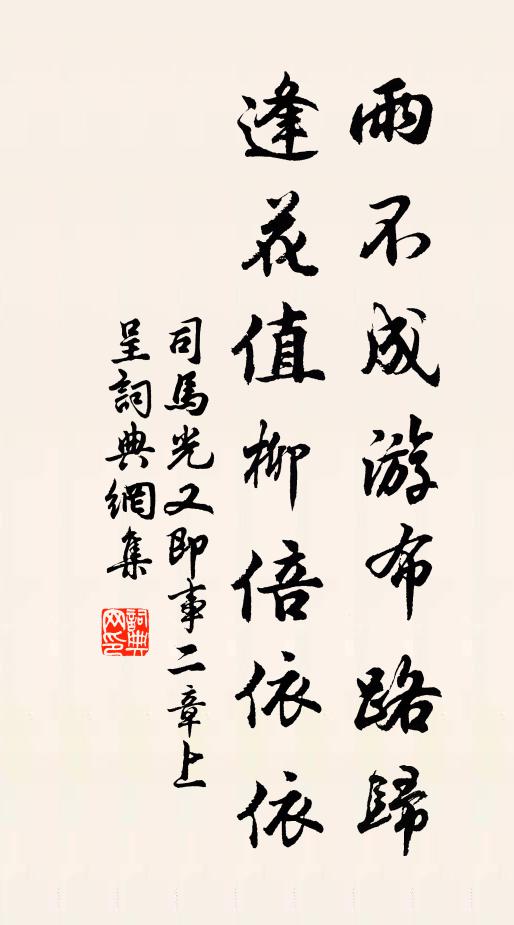 雨不成游布路歸
逢花值柳倍依依
司馬光又即事二章上
呈詞典網集
詞典
网印